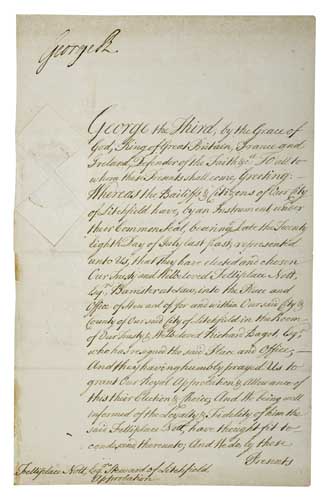 George R
George the Third, by the Grace of
God, King of Great Britain, France and
Ireland, Defender of the Faith &c. To all to
whom these Presents shall come, Greeting:
Whereas the Bailiffs & Citizens of Our City
of Litchfield have, by an Instrument under
their Common Seal, bearing date the Twenty
Eighth Day of July last past, represented
unto Us, that they have elected and chosen
Our Trusty and Welbeloved Fettiplace Nott,
Esqr. Barrister at Law, into the Place and
Office of Steward of, for and within Our said City &
County of Our said City of Litchfield in the Room
of Our Trusty & Welbeloved Richard Bagot, Esqr.
who has resigned the said Place and Office; —
And they having humbly prayed Us to
grant Our Royal Approbation & Allowance of
this their Election & Choice; And We being well
informed of the Loyalty & Fidelity of him the
said Fettiplace Nott, have thought fit to
condescend thereunto; And We do by these
Presents
Fettiplace Nott, Esqr. Steward of Litchfield
Approbation